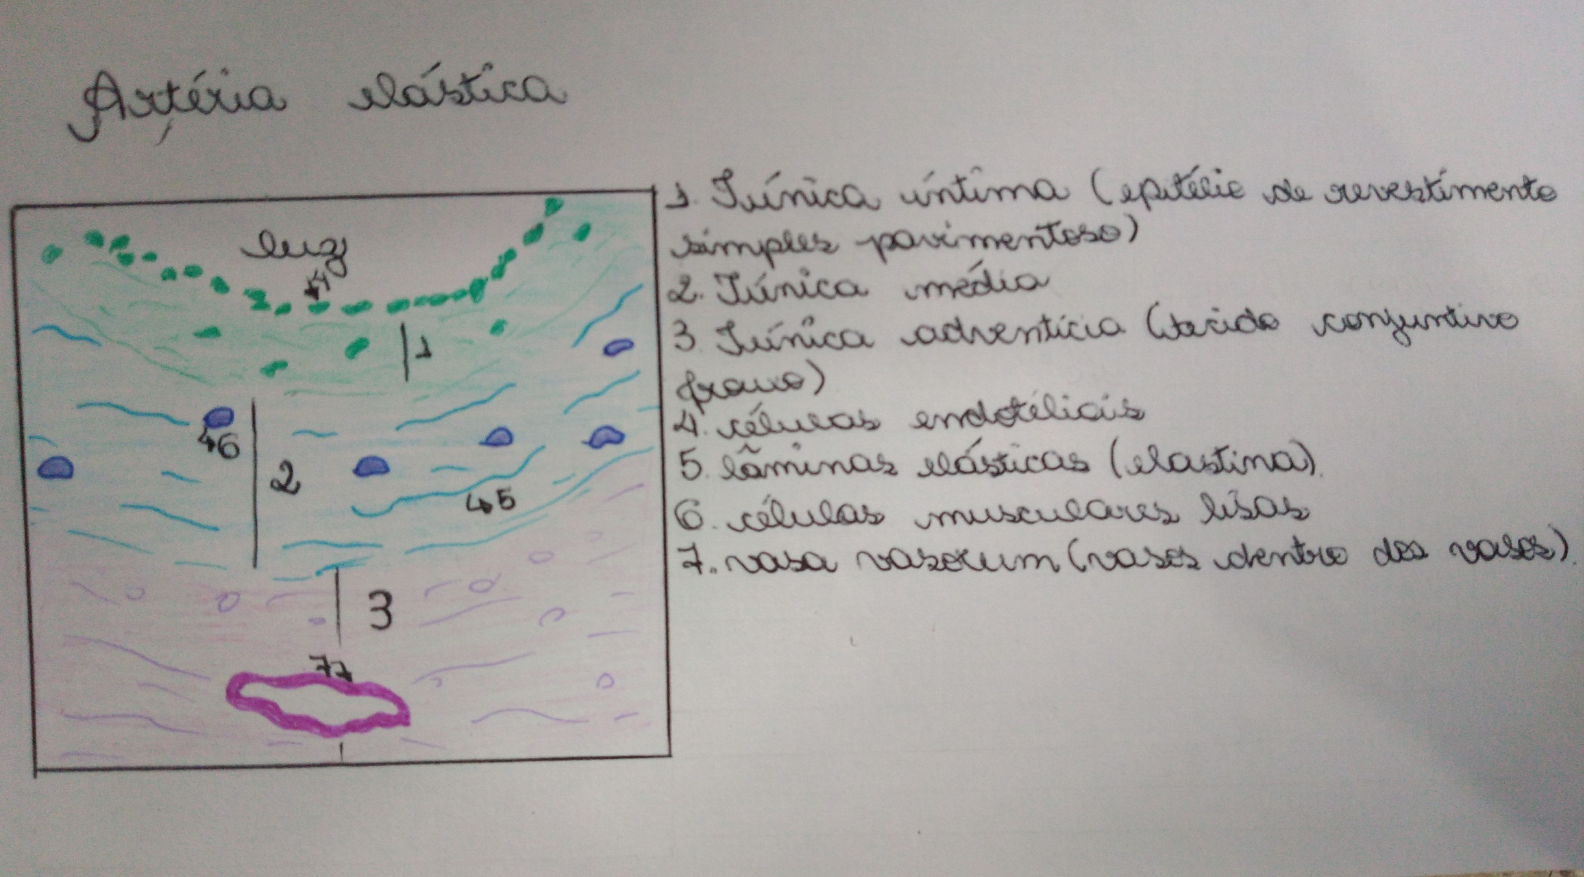 Artéria elástica
luz
4
1
46
2
45
3
77
1. Túnica íntima (epitélio de revestimento
simples pavimentoso)
2. Túnica média
3. Túnica adventícia (tecido conjuntivo
frouxo)
4. células endoteliais
5. lâminas elásticas (elastina).
6. células musculares lisas
7. vasa vasorum (vasos dentro dos vasos).